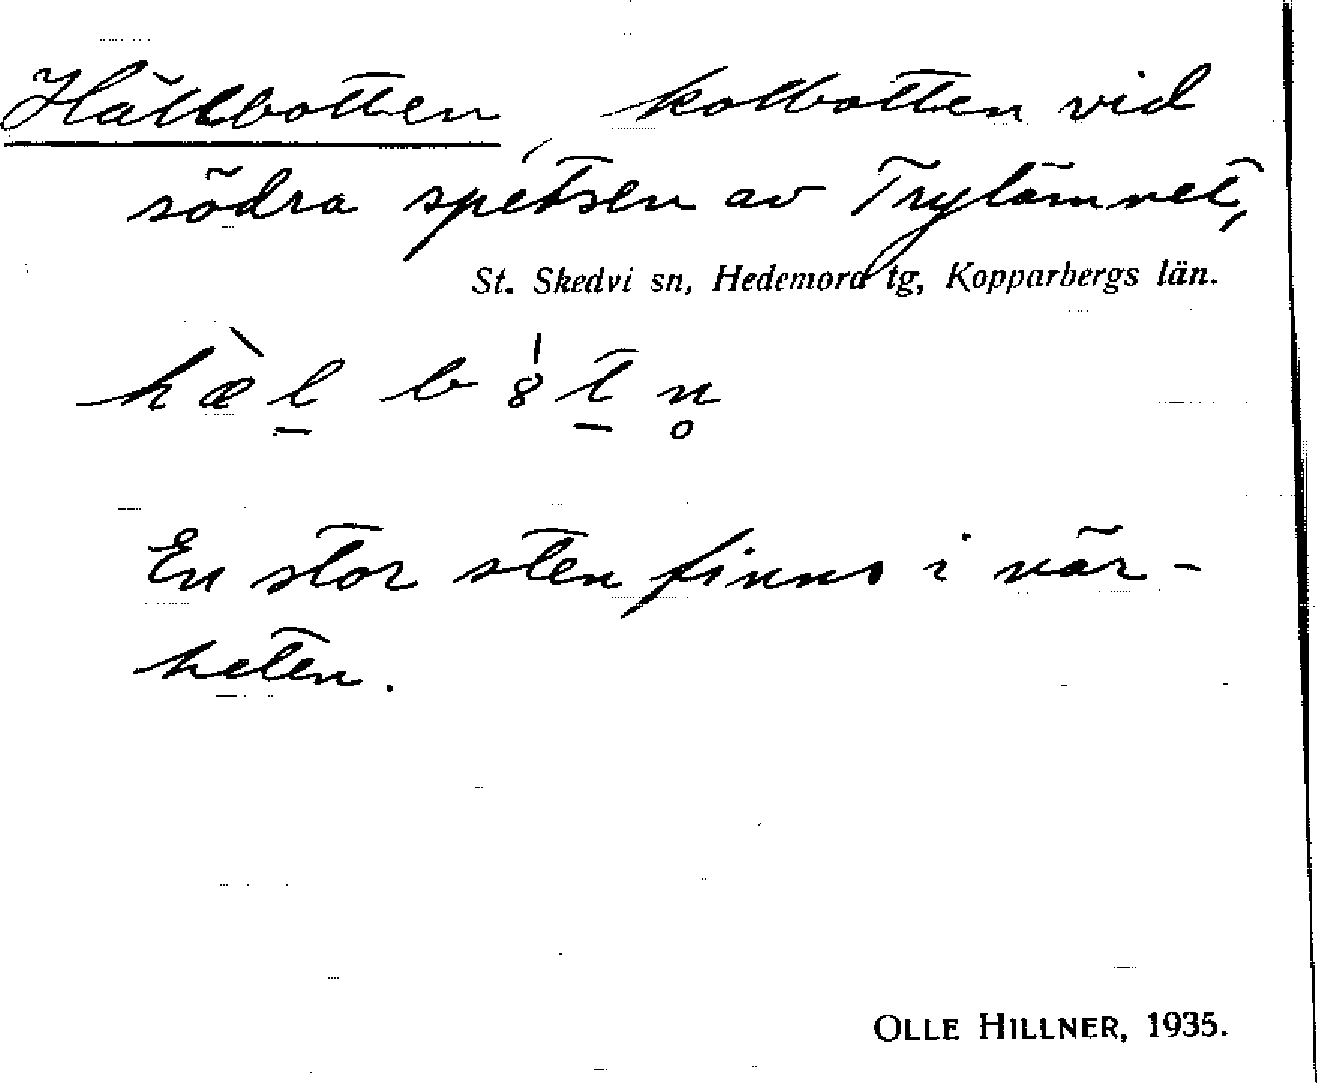 Hällbotten, kolbotten vid
södra spetsen av Trytämnet,
St. Skedvi sn, Hedemora tg, Kopparbergs län.
hæ̀l b8tn̥
En stor sten finns i när-
heten.
OLLE HILLNER, 1935.